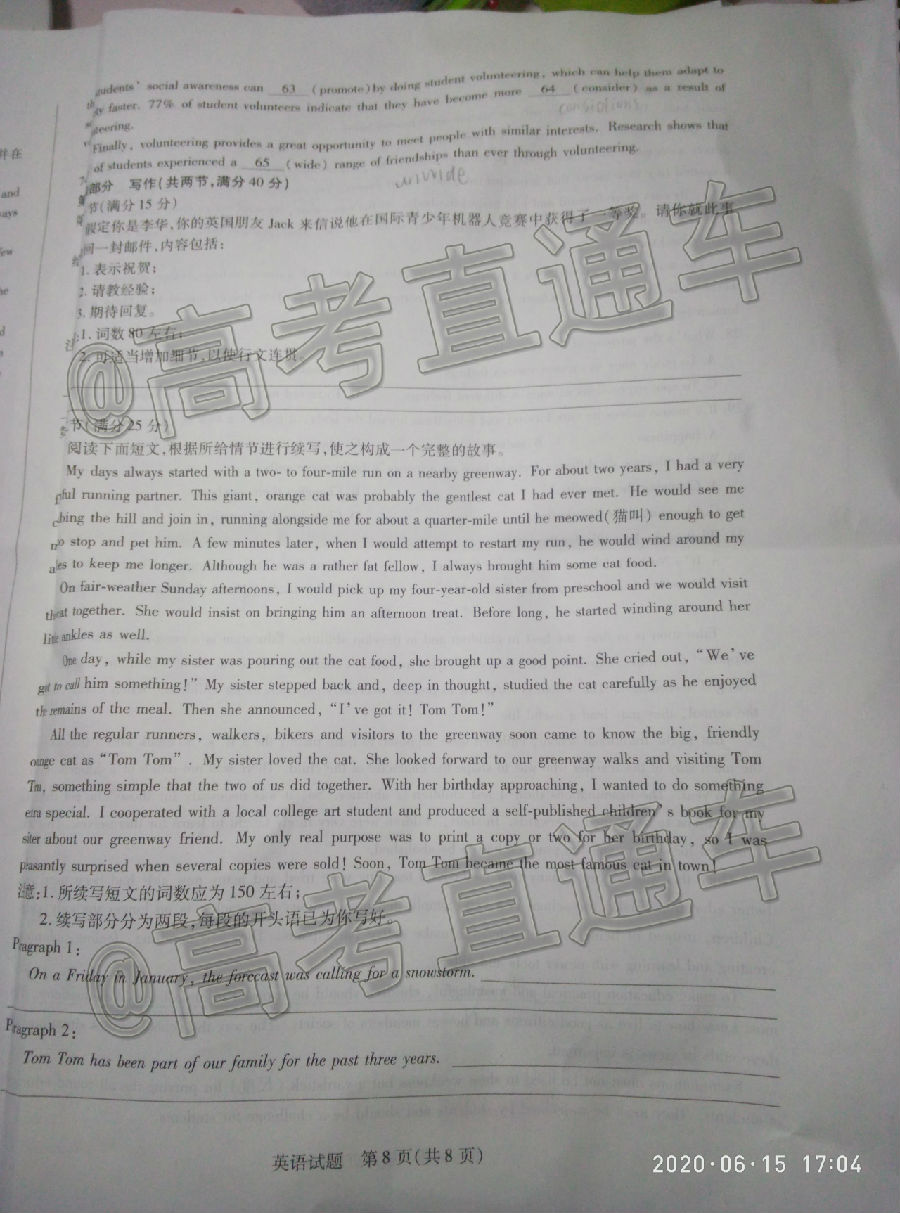 students' social awareness can 63 (promote) by doing student volunteering, which can help them adapt to
faster. 77% of student volunteers indicate that they have become more 64 (consider) as a result of
teering.
Finally, volunteering provides a great opportunity to meet people with similar interests. Research shows that
of students experienced a 65 (wide) range of friendships than ever through volunteering.
部分 写作(共两节,满分 40 分)
节(满分 15 分)
假定你是李华,你的英国朋友 Jack 来信说他在国际青少年机器人竞赛中获得了一等奖。请你就此事
回一封邮件,内容包括:
1. 表示祝贺;
2. 请教经验;
3. 期待回复。
注:1. 词数 80 左右;
2. 可适当增加细节,以使行文连贯。
节(满分 25 分)
阅读下面短文,根据所给情节进行续写,使之构成一个完整的故事。
My days always started with a two- to four-mile run on a nearby greenway. For about two years, I had a very
running partner. This giant, orange cat was probably the gentlest cat I had ever met. He would see me
the hill and join in, running alongside me for about a quarter-mile until he meowed(猫叫) enough to get
to stop and pet him. A few minutes later, when I would attempt to restart my run, he would wind around my
to keep me longer. Although he was a rather fat fellow, I always brought him some cat food.
On fair-weather Sunday afternoons, I would pick up my four-year-old sister from preschool and we would visit
the cat together. She would insist on bringing him an afternoon treat. Before long, he started winding around her
little ankles as well.
One day, while my sister was pouring out the cat food, she brought up a good point. She cried out, "We've
got to call him something!" My sister stepped back and, deep in thought, studied the cat carefully as he enjoyed
the remains of the meal. Then she announced, "I've got it! Tom Tom!"
All the regular runners, walkers, bikers and visitors to the greenway soon came to know the big, friendly
orange cat as "Tom Tom". My sister loved the cat. She looked forward to our greenway walks and visiting Tom
Tom, something simple that the two of us did together. With her birthday approaching, I wanted to do something
extra special. I cooperated with a local college art student and produced a self-published children's book for my
sister about our greenway friend. My only real purpose was to print a copy or two for her birthday, so I was
pleasantly surprised when several copies were sold! Soon, Tom Tom became the most famous cat in town!
注意:1. 所续写短文的词数应为 150 左右;
2. 续写部分分为两段,每段的开头语已为你写好。
Paragraph 1:
On a Friday in January, the forecast was calling for a snowstorm.
Paragraph 2:
Tom Tom has been part of our family for the past three years.
英语试题 第 8 页(共 8 页)
2020·06·15 17:04
@高考直通车
@高考直通车